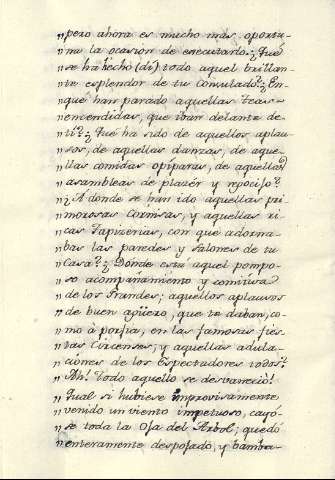 „pero ahora es mucho mas oportu-
„na la ocasion de executarlo: ¿Qué
„se há hecho (di) todo aquel brillan-
„te esplendor de tu Consulado? ¿En
„qué han parado aquellas teas
„encendidas, que iban delante de
„tí? ¿Qué ha sido de aquellos aplau-
„sos, de aquellas danzas, de aque-
„llas comidas opíparas, de aquellas
„asambleas de placér y regocijo?
„¿A donde se han ido aquellas pri
„morosas Cortinas, y aquellas ri-
„cas Tapizerias, con que adorna-
„bas las paredes y salones de tu
„Casa? ¿Dónde está aquel pompo-
„so acompañamiento y comitiva
„de los Grandes; aquellos aplausos
„de buen agüero, que te daban, co-
„mo à porfia, en las famosas fies-
„tas Circenses; y aquellas adula-
„ciones de los Espectadores todos?
„Ah! Todo aquello se desvaneció!
„Qual si hubiese improvisamente
„venido un viento impetuoso, cayó-
„se toda la Oja del Arbol; quedó
„enteramente despojado, y bamba-